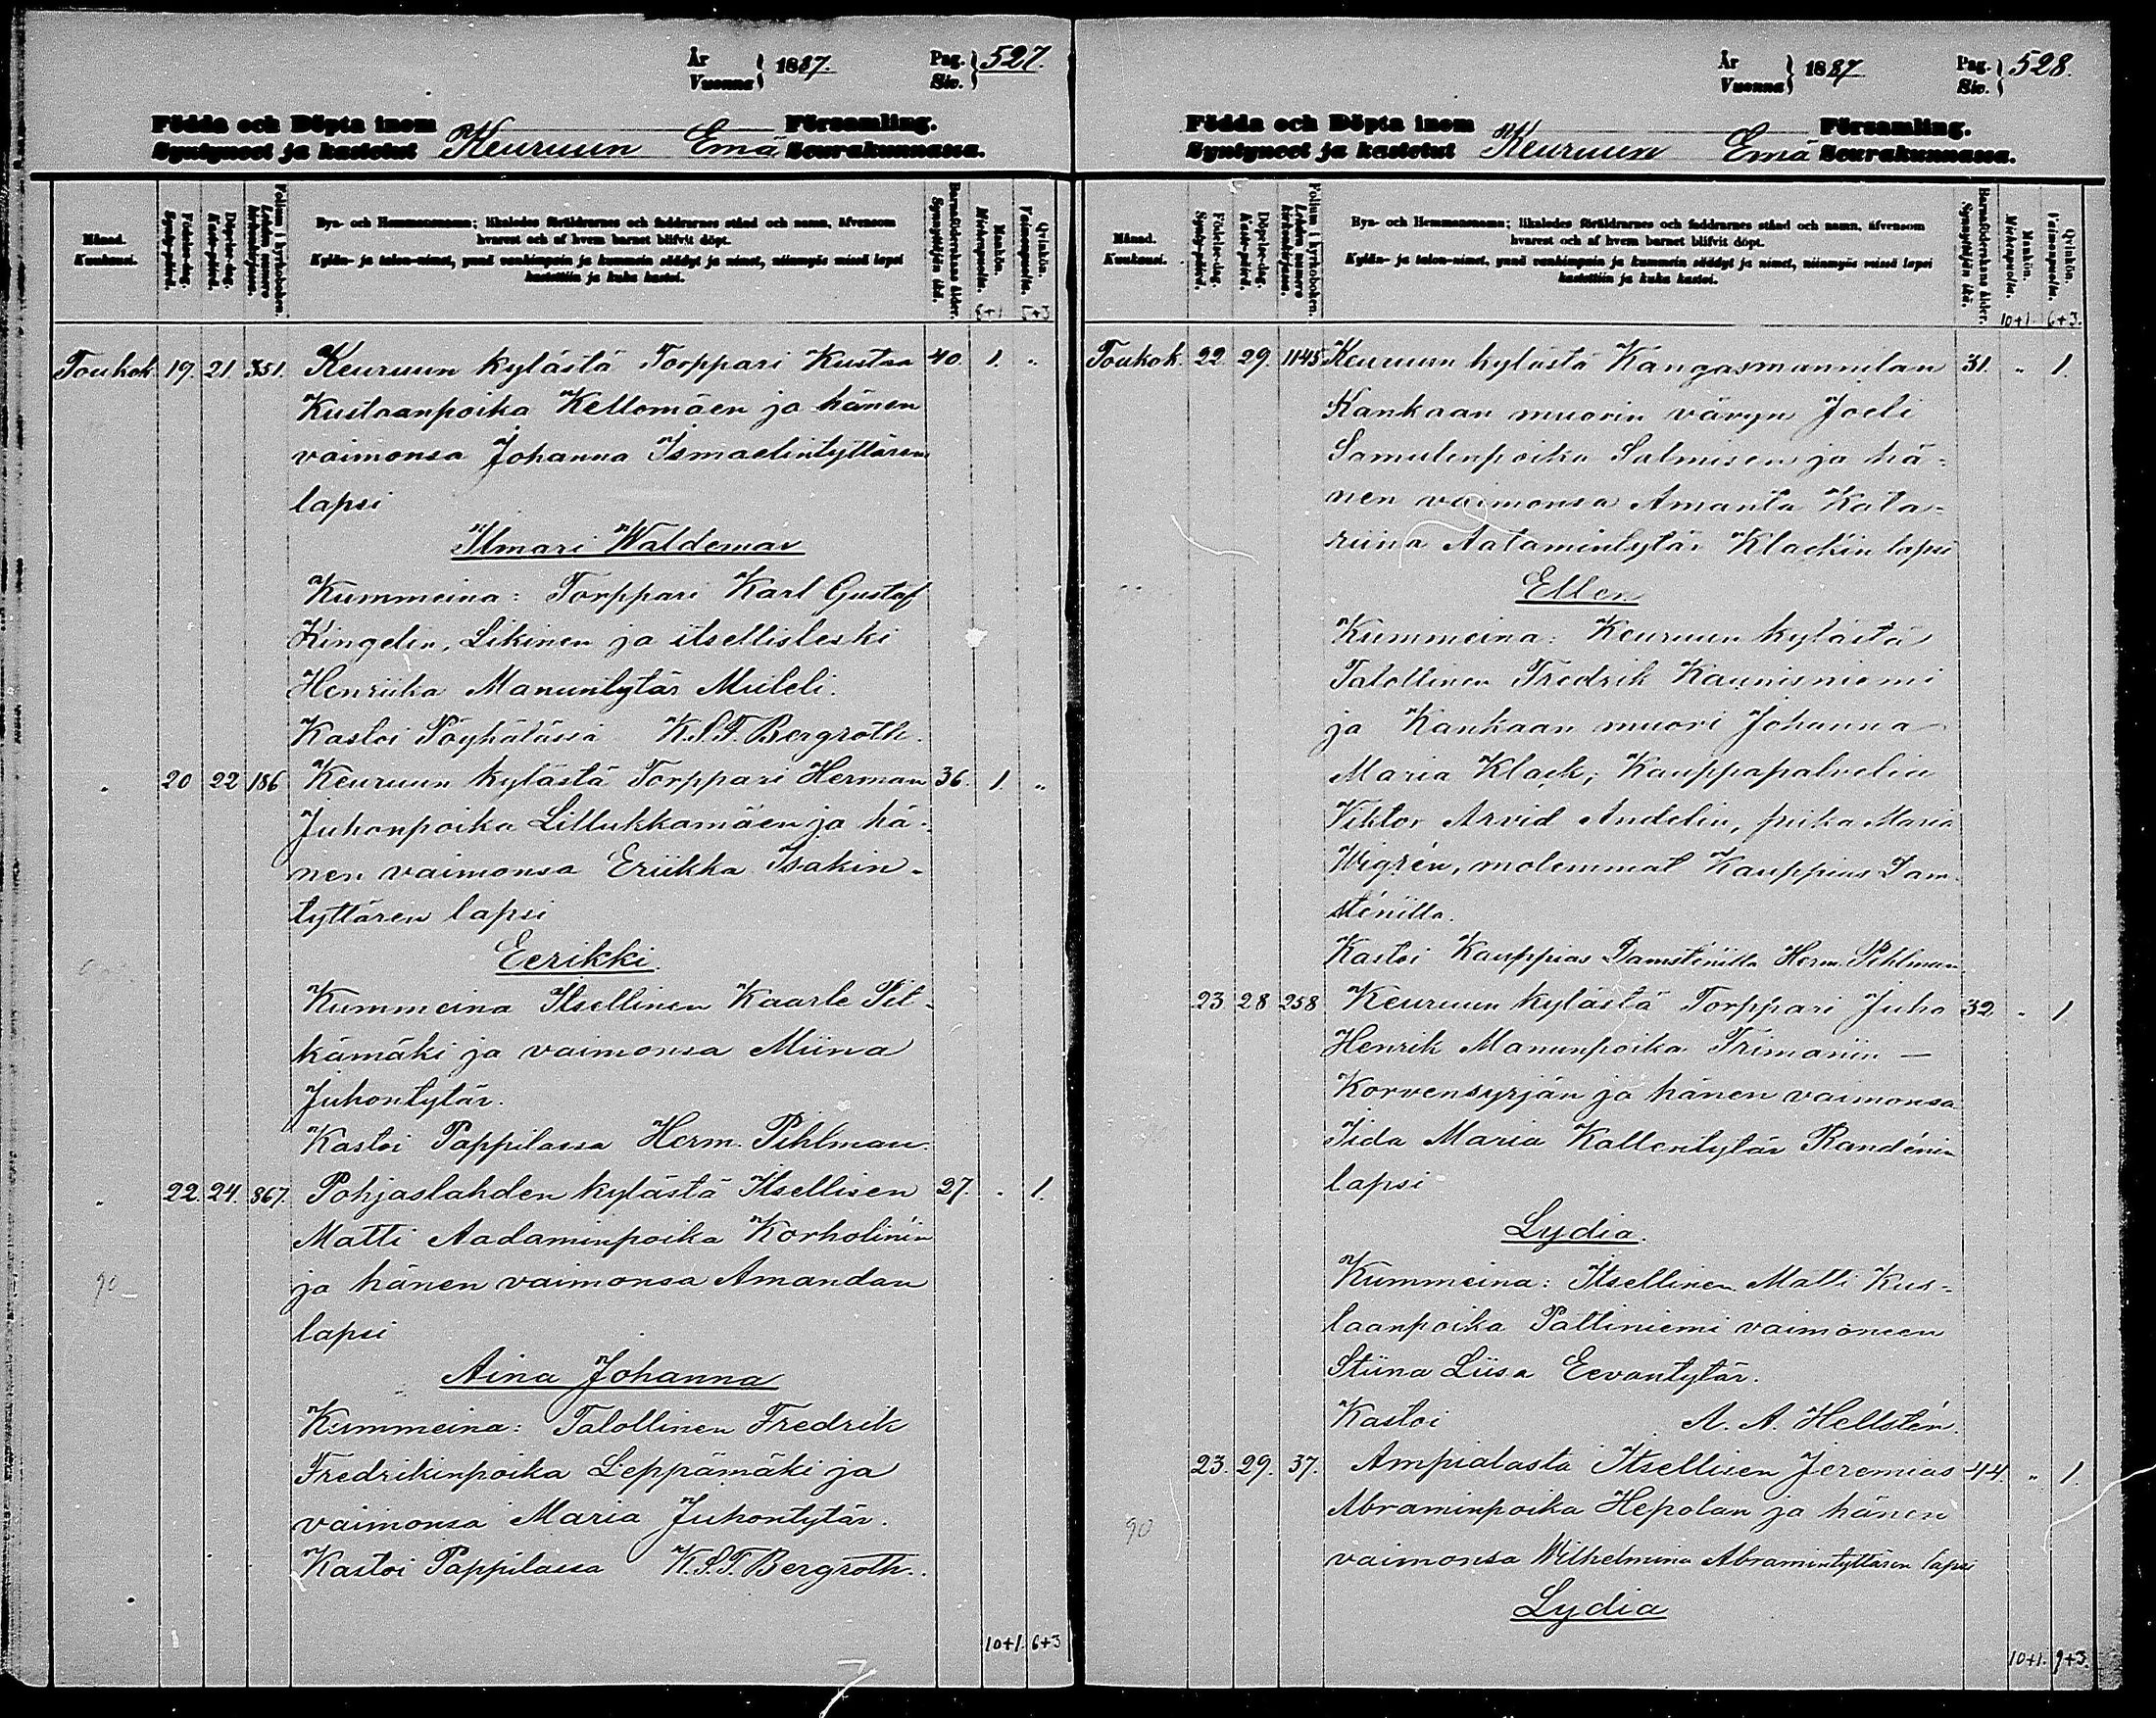 År
Vuonna
1887.
Pag.
Siv.
527.
Födda och Döpta inom
Syntyneet ja kastetut
Keuruun Emä
Församling.
Seurakunnassa.
Månad.
Kuukausi.
Födelse-dag.
Synty-päivä.
Döpelse-dag.
Kaste-päivä.
Folium i kyrkoboken.
Lehden numero kirkonkirjassa.
Bya- och Hemmansnamn; likaledes föräldrarnes och faddrarnes stånd och namn, äfvensom
hvarest och af hvem barnet blifvit döpt.
Kylän- ja talon-nimet, ynnä vanhimpain ja kummein säädyt ja nimet, niinmyös missä lapsi
kastettiin ja kuka kastoi.
Barnaföderskans ålder.
Synnyttäjän ikä.
Mankön.
Miehenpuolia.
Qvinkön.
Vaimonpuolia.
8+1 5+3
Toukok. 19. 21. 351. Keuruun kylästä Torppari Kustaa 40. 1. "
Kustaanpoika Kellomäen ja hänen
vaimonsa Johanna Ismaelintyttären
lapsi
Ilmari Waldemar
Kummeina: Torppari Karl Gustaf
Kingelin, Likinen ja itsellisleski
Henriika Manuntytär Mieleli.
Kastoi Pöyhölässä K.S.F. Bergroth.
" 20 22 186 Keuruun kylästä Torppari Herman 36. 1. "
Juhonpoika Lillukkamäen ja hä-
nen vaimonsa Eriikka Isakin-
tyttären lapsi
Eerikki.
Kummeina Itsellinen Kaarle Pit-
kämäki ja vaimonsa Miina
Juhontytär.
Kastoi Pappilassa Herm. Pihlman.
" 22. 24. 867. Pohjaslahden kylästä Itsellisen 27. " 1.
Matti Aadaminpoika Korholinin
ja hänen vaimonsa Amandan
90
lapsi
Aina Johanna
Kummeina: Talollinen Fredrik
Fredrikinpoika Leppämäki ja
vaimonsa Maria Juhontytär.
Kastoi Pappilassa K.S.F. Bergroth.
10+1. 6+3
År
Vuonna
1887
Pag.
Siv.
528.
Födda och Döpta inom
Syntyneet ja kastetut
Keuruun Emä
Församling.
Seurakunnassa.
Månad.
Kuukausi.
Födelse-dag.
Synty-päivä.
Döpelse-dag.
Kaste-päivä.
Folium i kyrkoboken.
Lehden numero kirkonkirjassa.
Bya- och Hemmansnamn; likaledes föräldrarnes och faddrarnes stånd och namn, äfvensom
hvarest och af hvem barnet blifvit döpt.
Kylän- ja talon-nimet, ynnä vanhimpain ja kummein säädyt ja nimet, niinmyös missä lapsi
kastettiin ja kuka kastoi.
Barnaföderskans ålder.
Synnyttäjän ikä.
Mankön.
Miehenpuolia.
Qvinkön.
Vaimonpuolia.
10+1. 6+3.
Toukok. 22. 29. 1145 Keuruun kylästä Kangasmannilan 31. " 1.
Kankaan muorin vävyn Joeli
Samulenpoika Salmisen ja hä-
nen vaimonsa Amanta Kata-
riina Aatamintytär Klackin lapsi
Ellen
Kummeina: Keuruun kylästä
Talollinen Fredrik Kaunisniemi
ja Kankaan muori Johanna
Maria Klack; Kauppapalvelia
Viktor Arvid Andelin, piika Maria
Wigrén, molemmat Kauppias Dam-
sténilla.
Kastoi Kauppias Damsténilla Herm. Pihlman.
23. 28 258 Keuruun kylästä Torppari Juho 32. " 1
Henrik Manunpoika Frimanin -
Korvensyrjän ja hänen vaimonsa
Iida Maria Kallentytär Randénin
lapsi
Lydia.
Kummeina: Itsellinen Matti Kus-
taanpoika Paltiniemi vaimoneen
Stiina Liisa Eevantytär.
Kastoi A. A. Hellstén.
23. 29. 37. Ampialasta Itsellisen Jeremias 44. " 1.
Abraminpoika Hepolan ja hänen
90
vaimonsa Wilhelmina Abramintyttären lapsi
Lydia
10+1. 9+3.